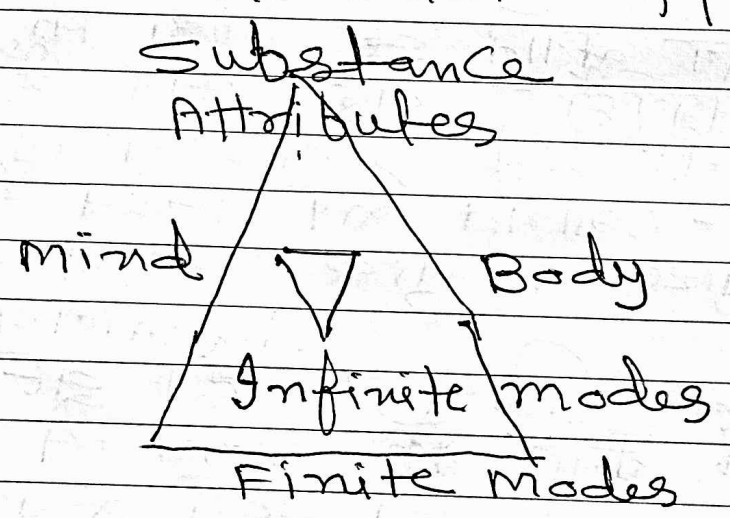 Substance
Attributes
mind Body
Infinite modes
Finite Modes